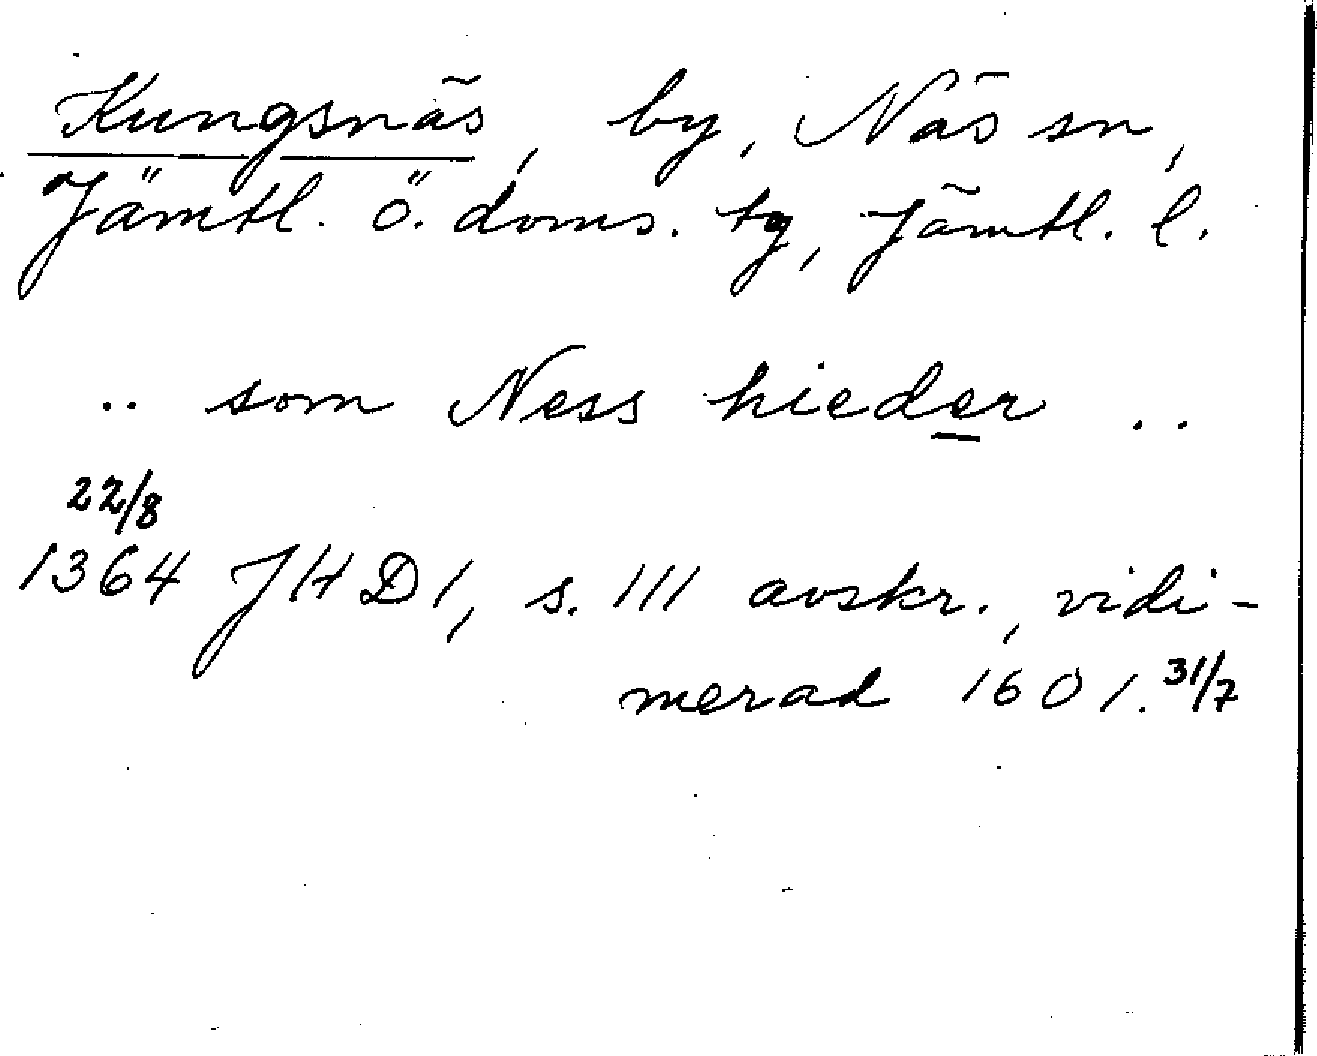 Kungsnäs, by, Näs sn,
Jämtl. ö. doms. tg, Jämtl. l.
.. som Ness hieder ..
22/8
1364 JHD1, s. 111 avskr., vidi-
merad 1601. 31/7